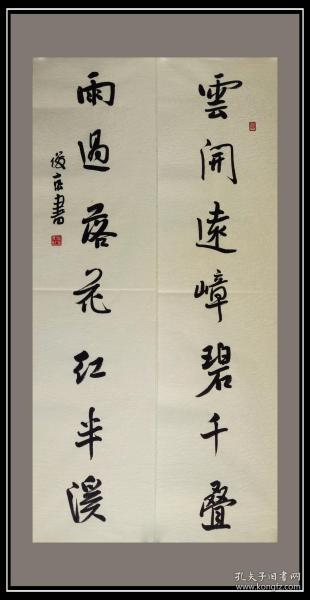 雲開遠嶂碧千叠
雨過落花紅半溪
俊京書
孔夫子旧书网
www.kongfz.com